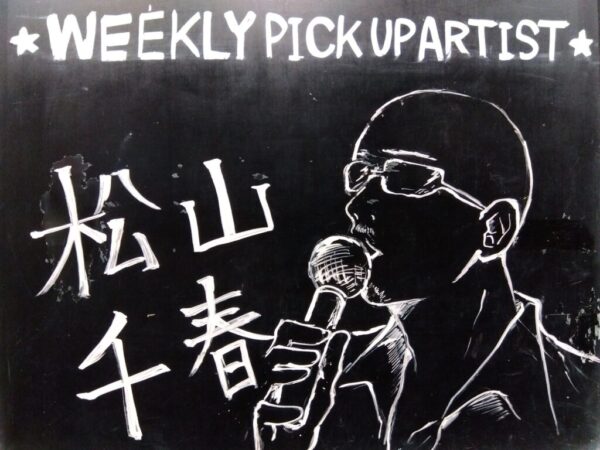 ★WEEKLY PICK UP ARTIST★
松山
千春